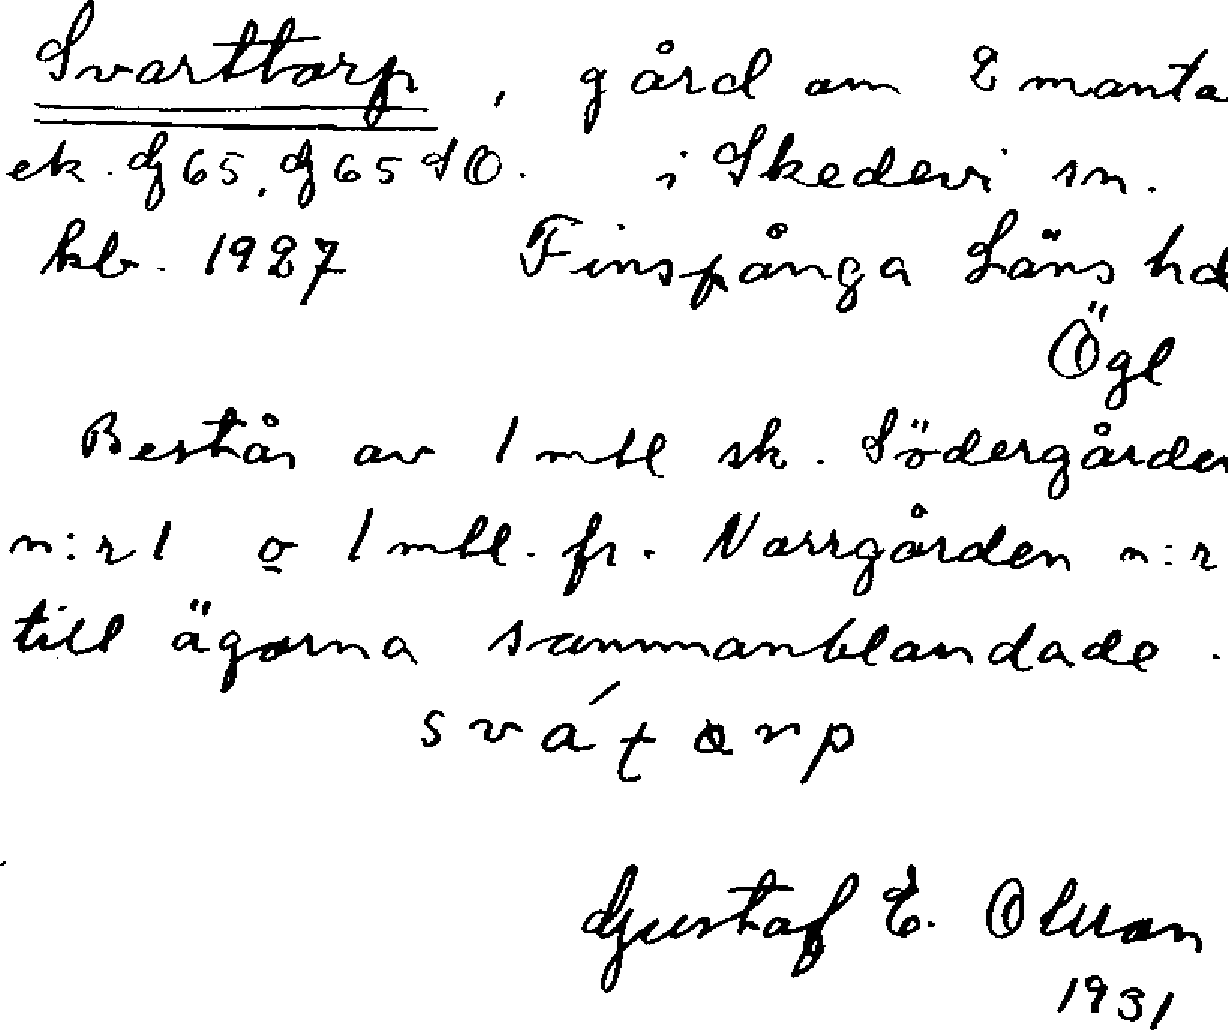 Svarttorp, gård om 2 manta
ek. G 65, G 65 SO. i Skedevi sn.
kb. 1927 Finspånga Läns hd
Ögl
Består av 1 mtl sk. Södergården
n:r 1 o 1 mtl. fr. Norrgården n:r
till ägorna sammanblandade.
Gustaf E. Olsson
1931